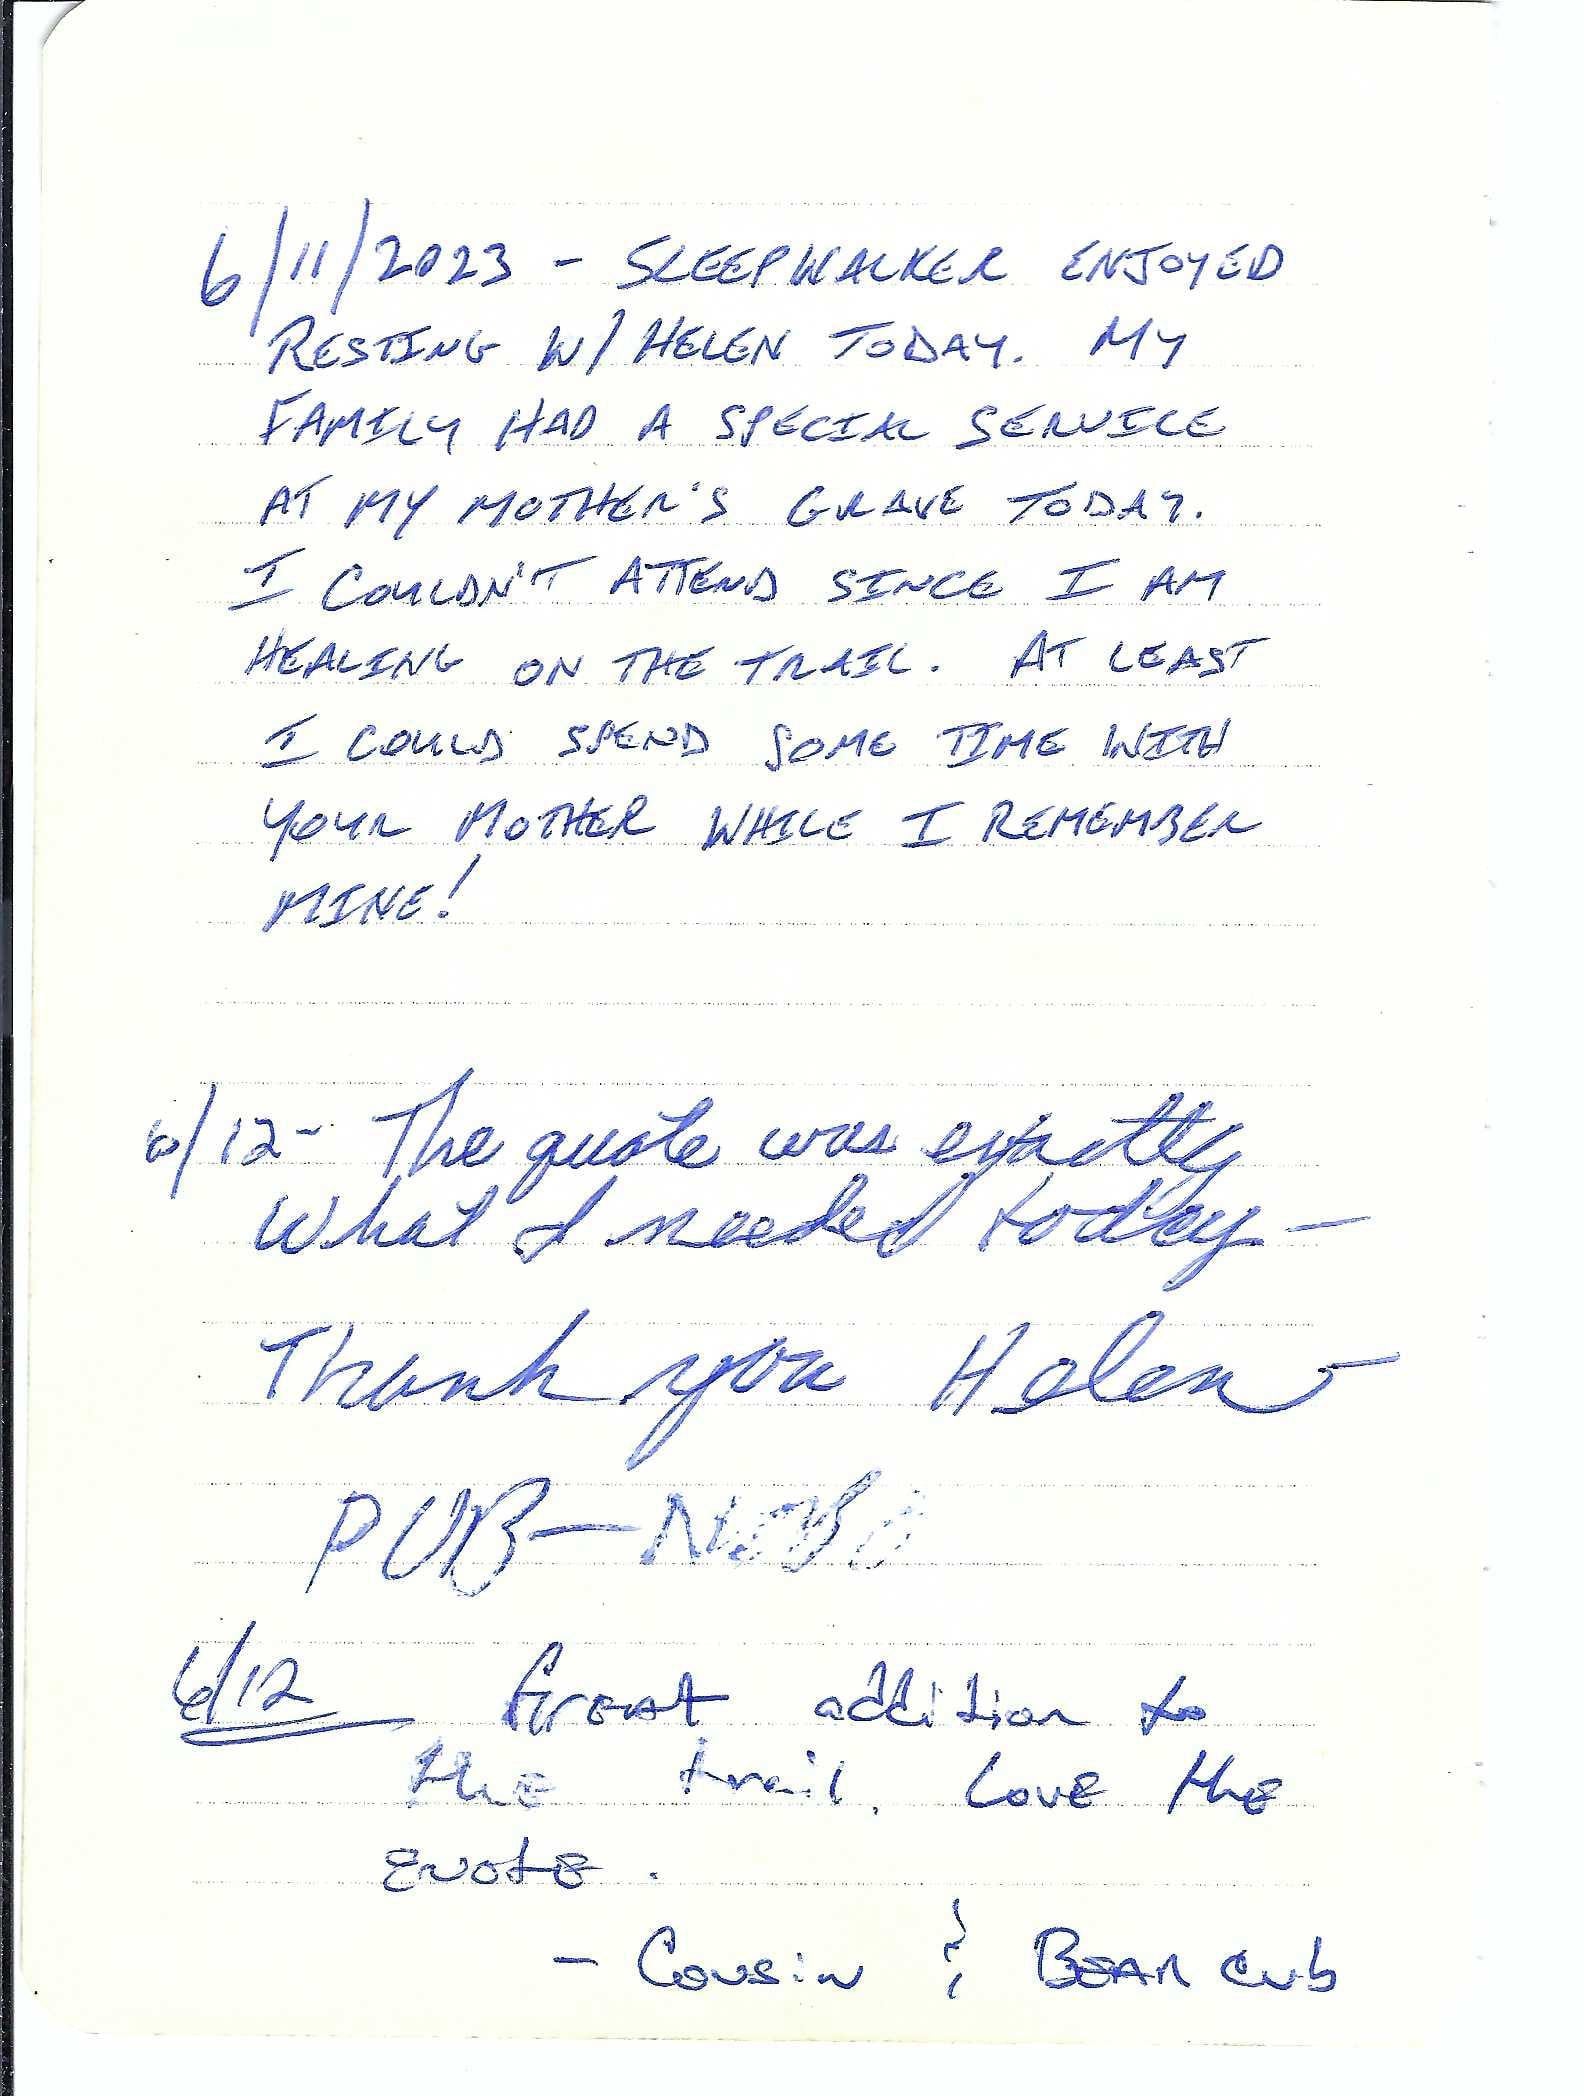 6/11/2023 - SLEEPWALKER ENJOYED
RESTING W/ HELEN TODAY. MY
FAMILY HAD A SPECIAL SERVICE
AT MY MOTHER'S GRAVE TODAY.
I COULDN'T ATTEND SINCE I AM
HEALING ON THE TRAIL. AT LEAST
I COULD SPEND SOME TIME WITH
YOUR MOTHER WHILE I REMEMBER
MINE!
6/12- The quote was exactly
what I needed today -
Thank you Helen -
PUB - NOBO
6/12 Great addition to
the trail. Love the
quote.
- Cousin & BEAR Cub